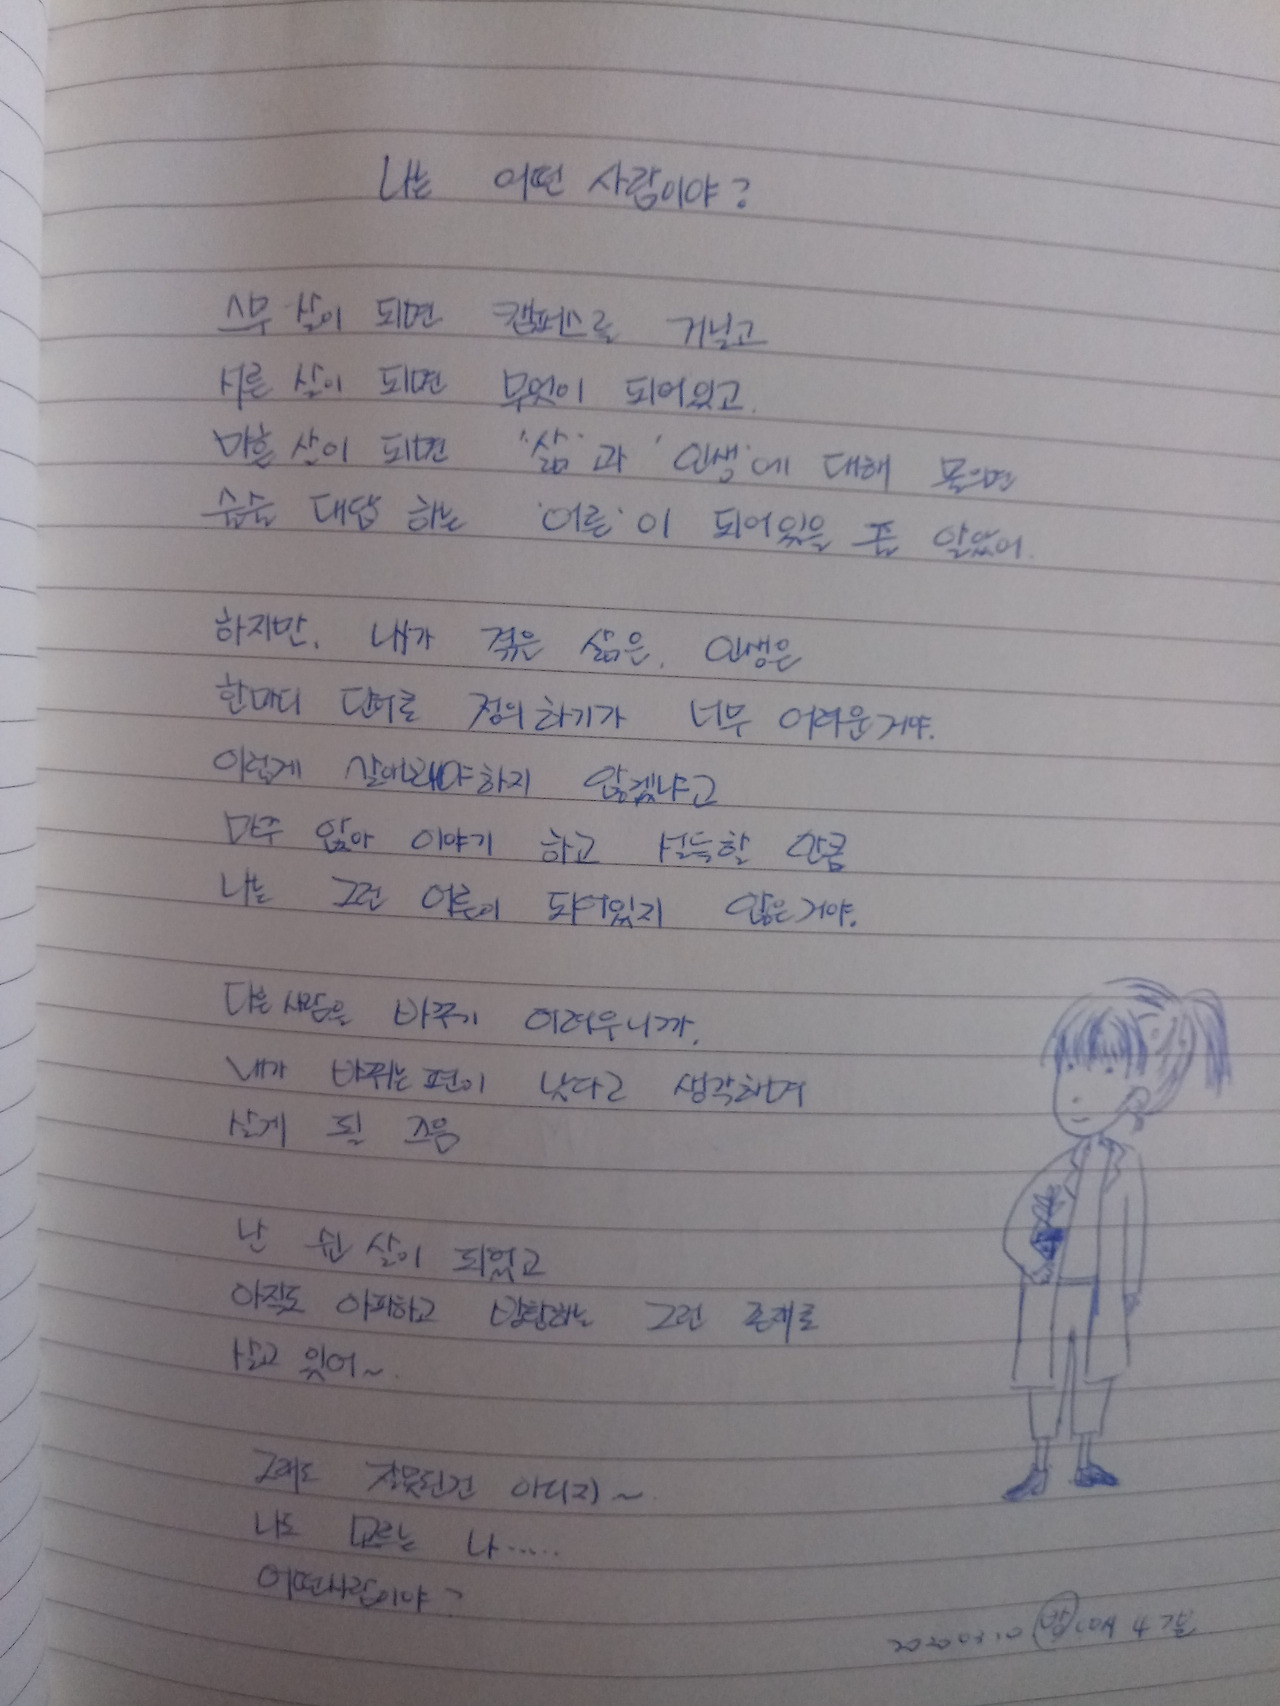 나는 어떤 사람이야?
스무 살이 되면 캠퍼스를 거닐고
서른 살이 되면 무엇이 되어있고.
마흔 살이 되면 '삶'과 '인생'에 대해 물으면
술술 대답 하는 '어른'이 되어있을 줄 알았어.
하지만, 내가 겪은 삶은, 인생은
한마디 단어로 정의하기가 너무 어려운거야.
이렇게 살아봐야하지 않겠냐고
마주 앉아 이야기 하고 설득할 만큼
나는 그런 어른이 되어있지 않은거야.
다른 사람을 바꾸기 어려우니까,
내가 바뀌는 편이 낫다고 생각하며
살게 될 즈음
난 쉰 살이 되었고
아직도 아파하고 방황하는 그런 존재로
살고 있어~.
그래도 잘못된건 아니지~
나도 모르는 나......
어떤사람이야?